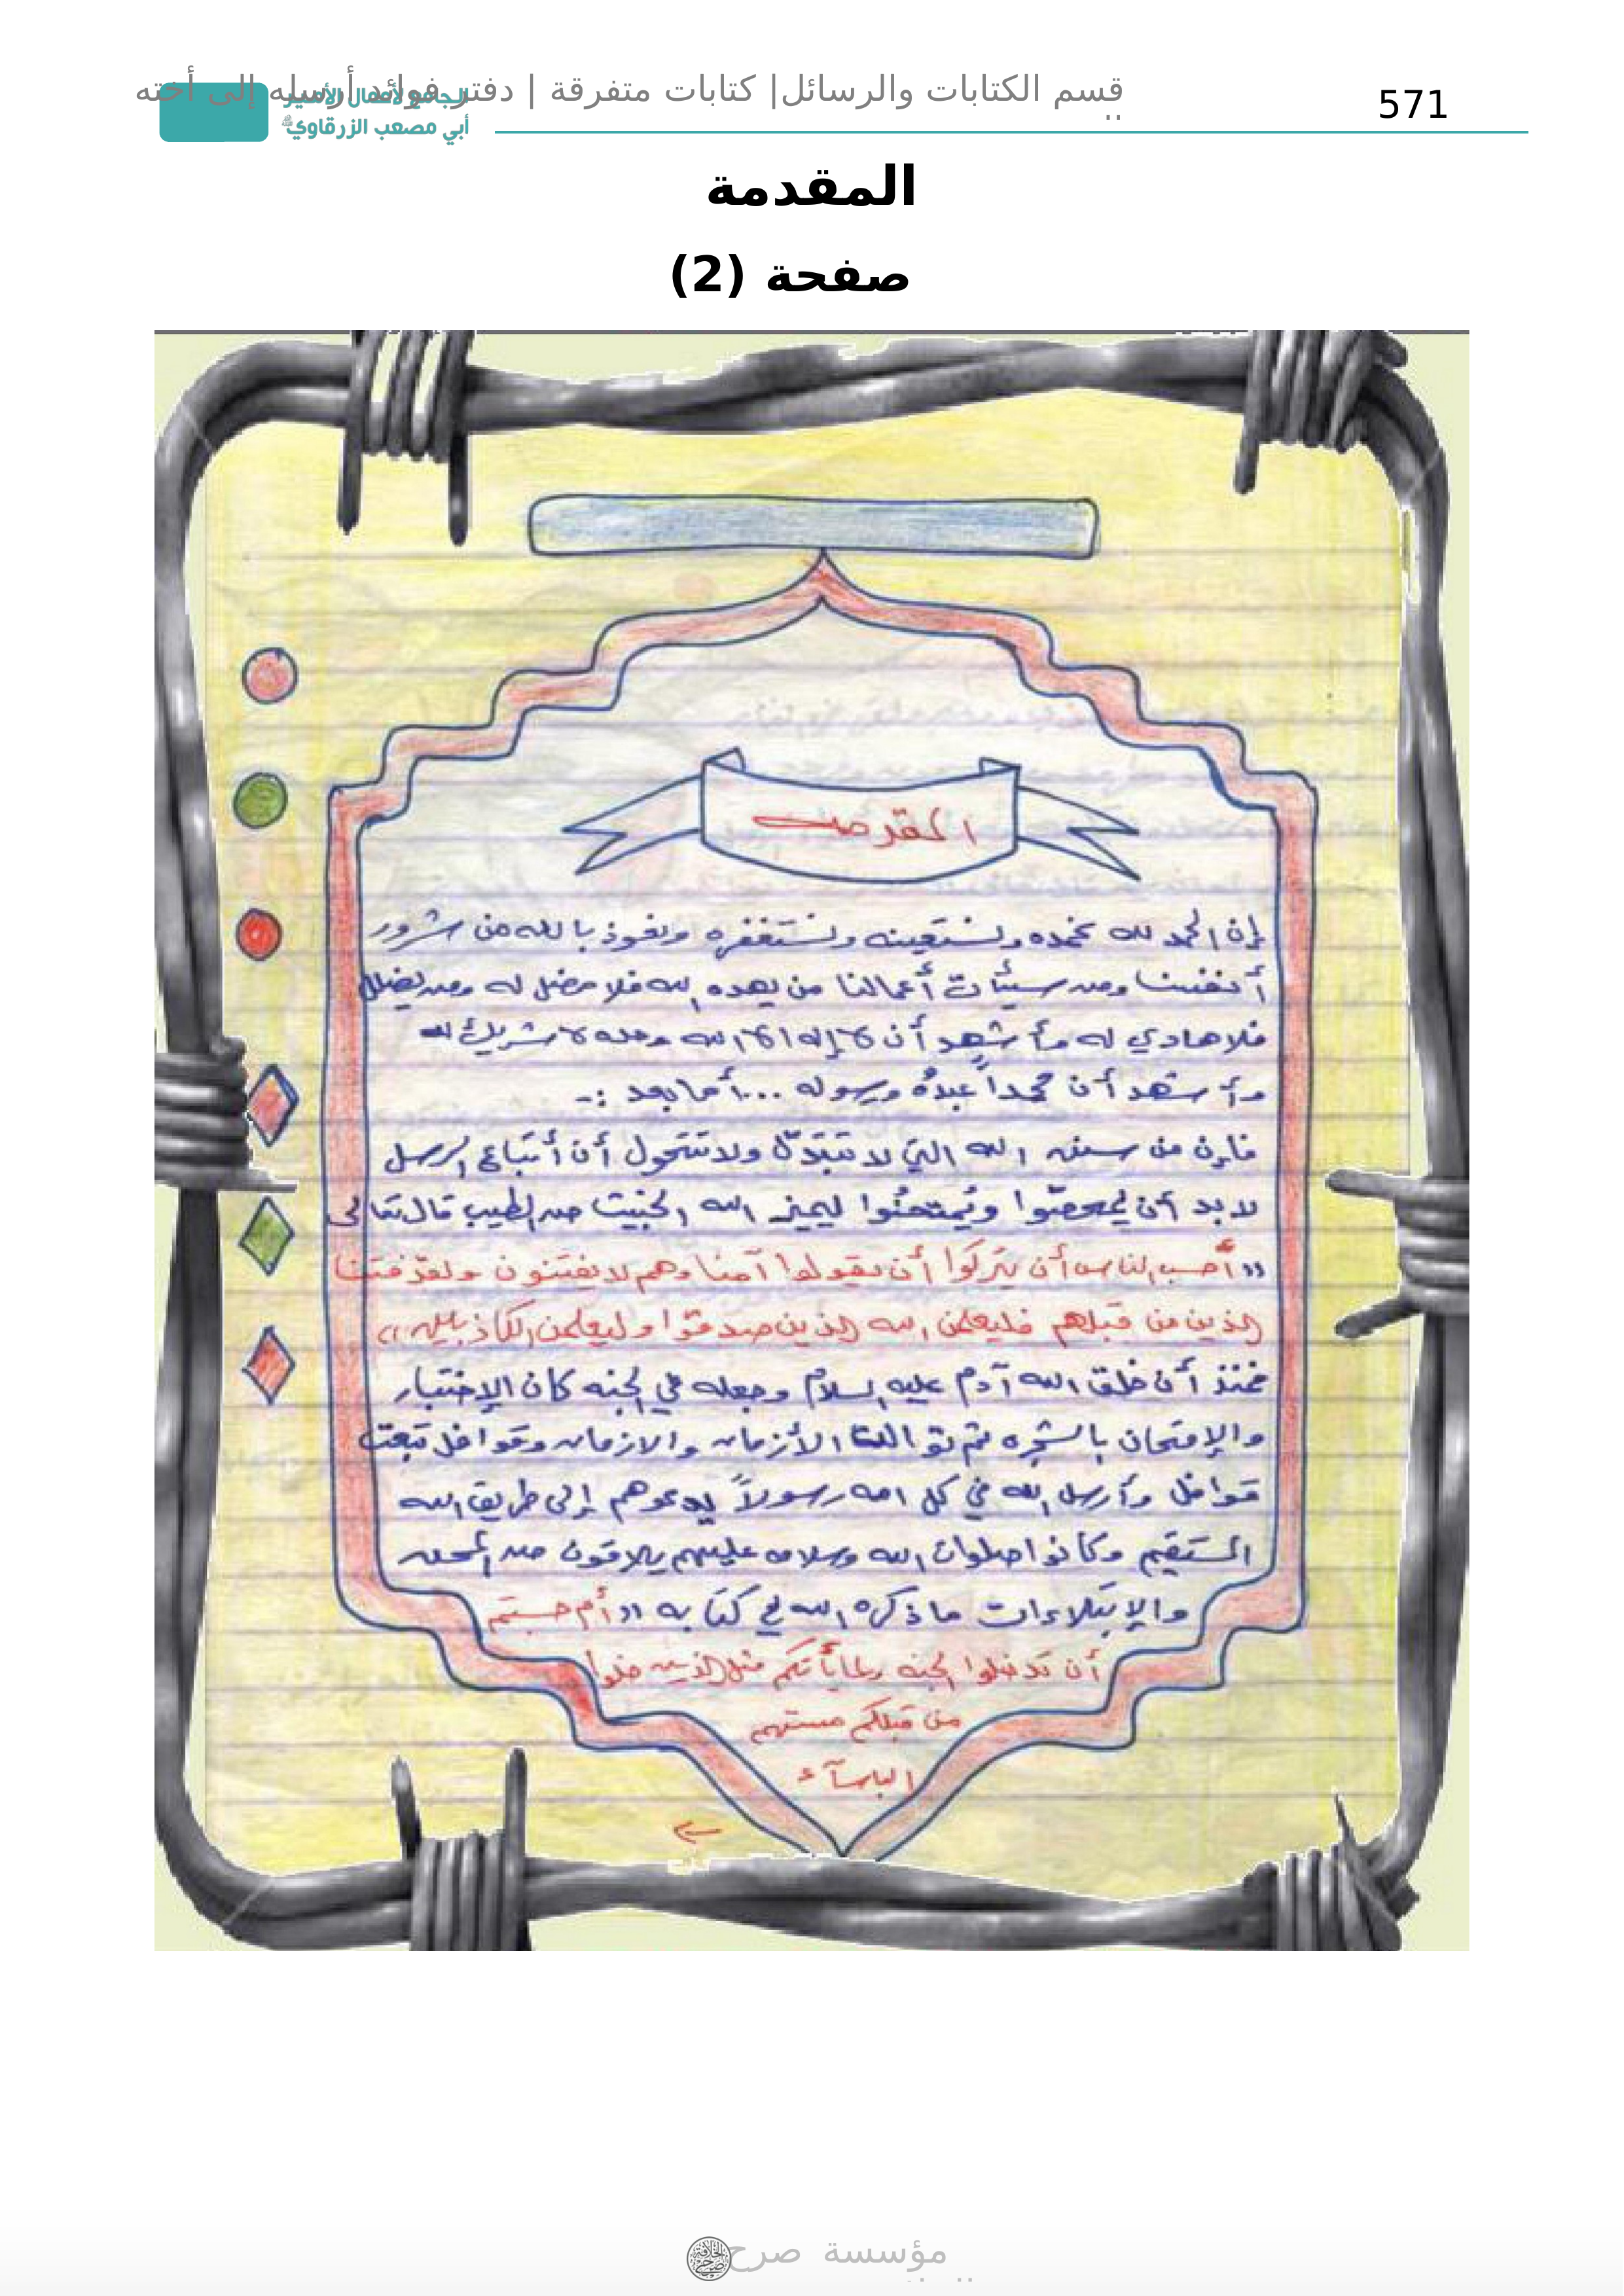 571
قسم الكتابات والرسائل| كتابات متفرقة | دفتر فوائد أرسله إلى أخته
الجامع لأعمال الأمير
أبي مصعب الزرقاوي
المقدمة
صفحة (2)
المقدمه
إن الحمد لله نحمده ونستعينه ونستغفره ونعوذ بالله من شرور
أنفسنا ومن سيئات أعمالنا من يهده الله فلا مضل له ومن يضلل
فلا هادي له وأشهد أن لا إله إلا الله وحده لا شريك له
وأشهد أن محمداً عبدهُ ورسوله ...أما بعد :-
فإن من سنن الله التي لا تتبدّل ولا تتحول أن أتباع الرسل
لا بد أن يُمحصّوا ويُمتحنُوا ليميز الله الخبيث من الطيب قال تعالى
"أحسب الناس أن يتركوا أن يقولوا آمنا وهم لا يفتنون ولقد فتنا
الذين من قبلهم فليعلمن الله الذين صدقوا وليعلمن الكاذبين"
فمنذ أن خلق الله آدم عليه السلام وجعله في الجنه كان الإختبار
والإمتحان بالشجره ثم توالت الأزمان والازمان وقوافل تبعت
قوافل وأرسل الله في كل امه رسولاً يدعوهم إلى طريق الله
المستقيم وكانوا صلوات الله وسلامه عليهم يلاقون من المحن
والإبتلاءات ما ذكره الله في كتابه "أم حسبتم
أن تدخلوا الجنه ولما يأتكم مثل الذين خلوا
من قبلكم مستهم
البأسآء
مؤسسة صرح